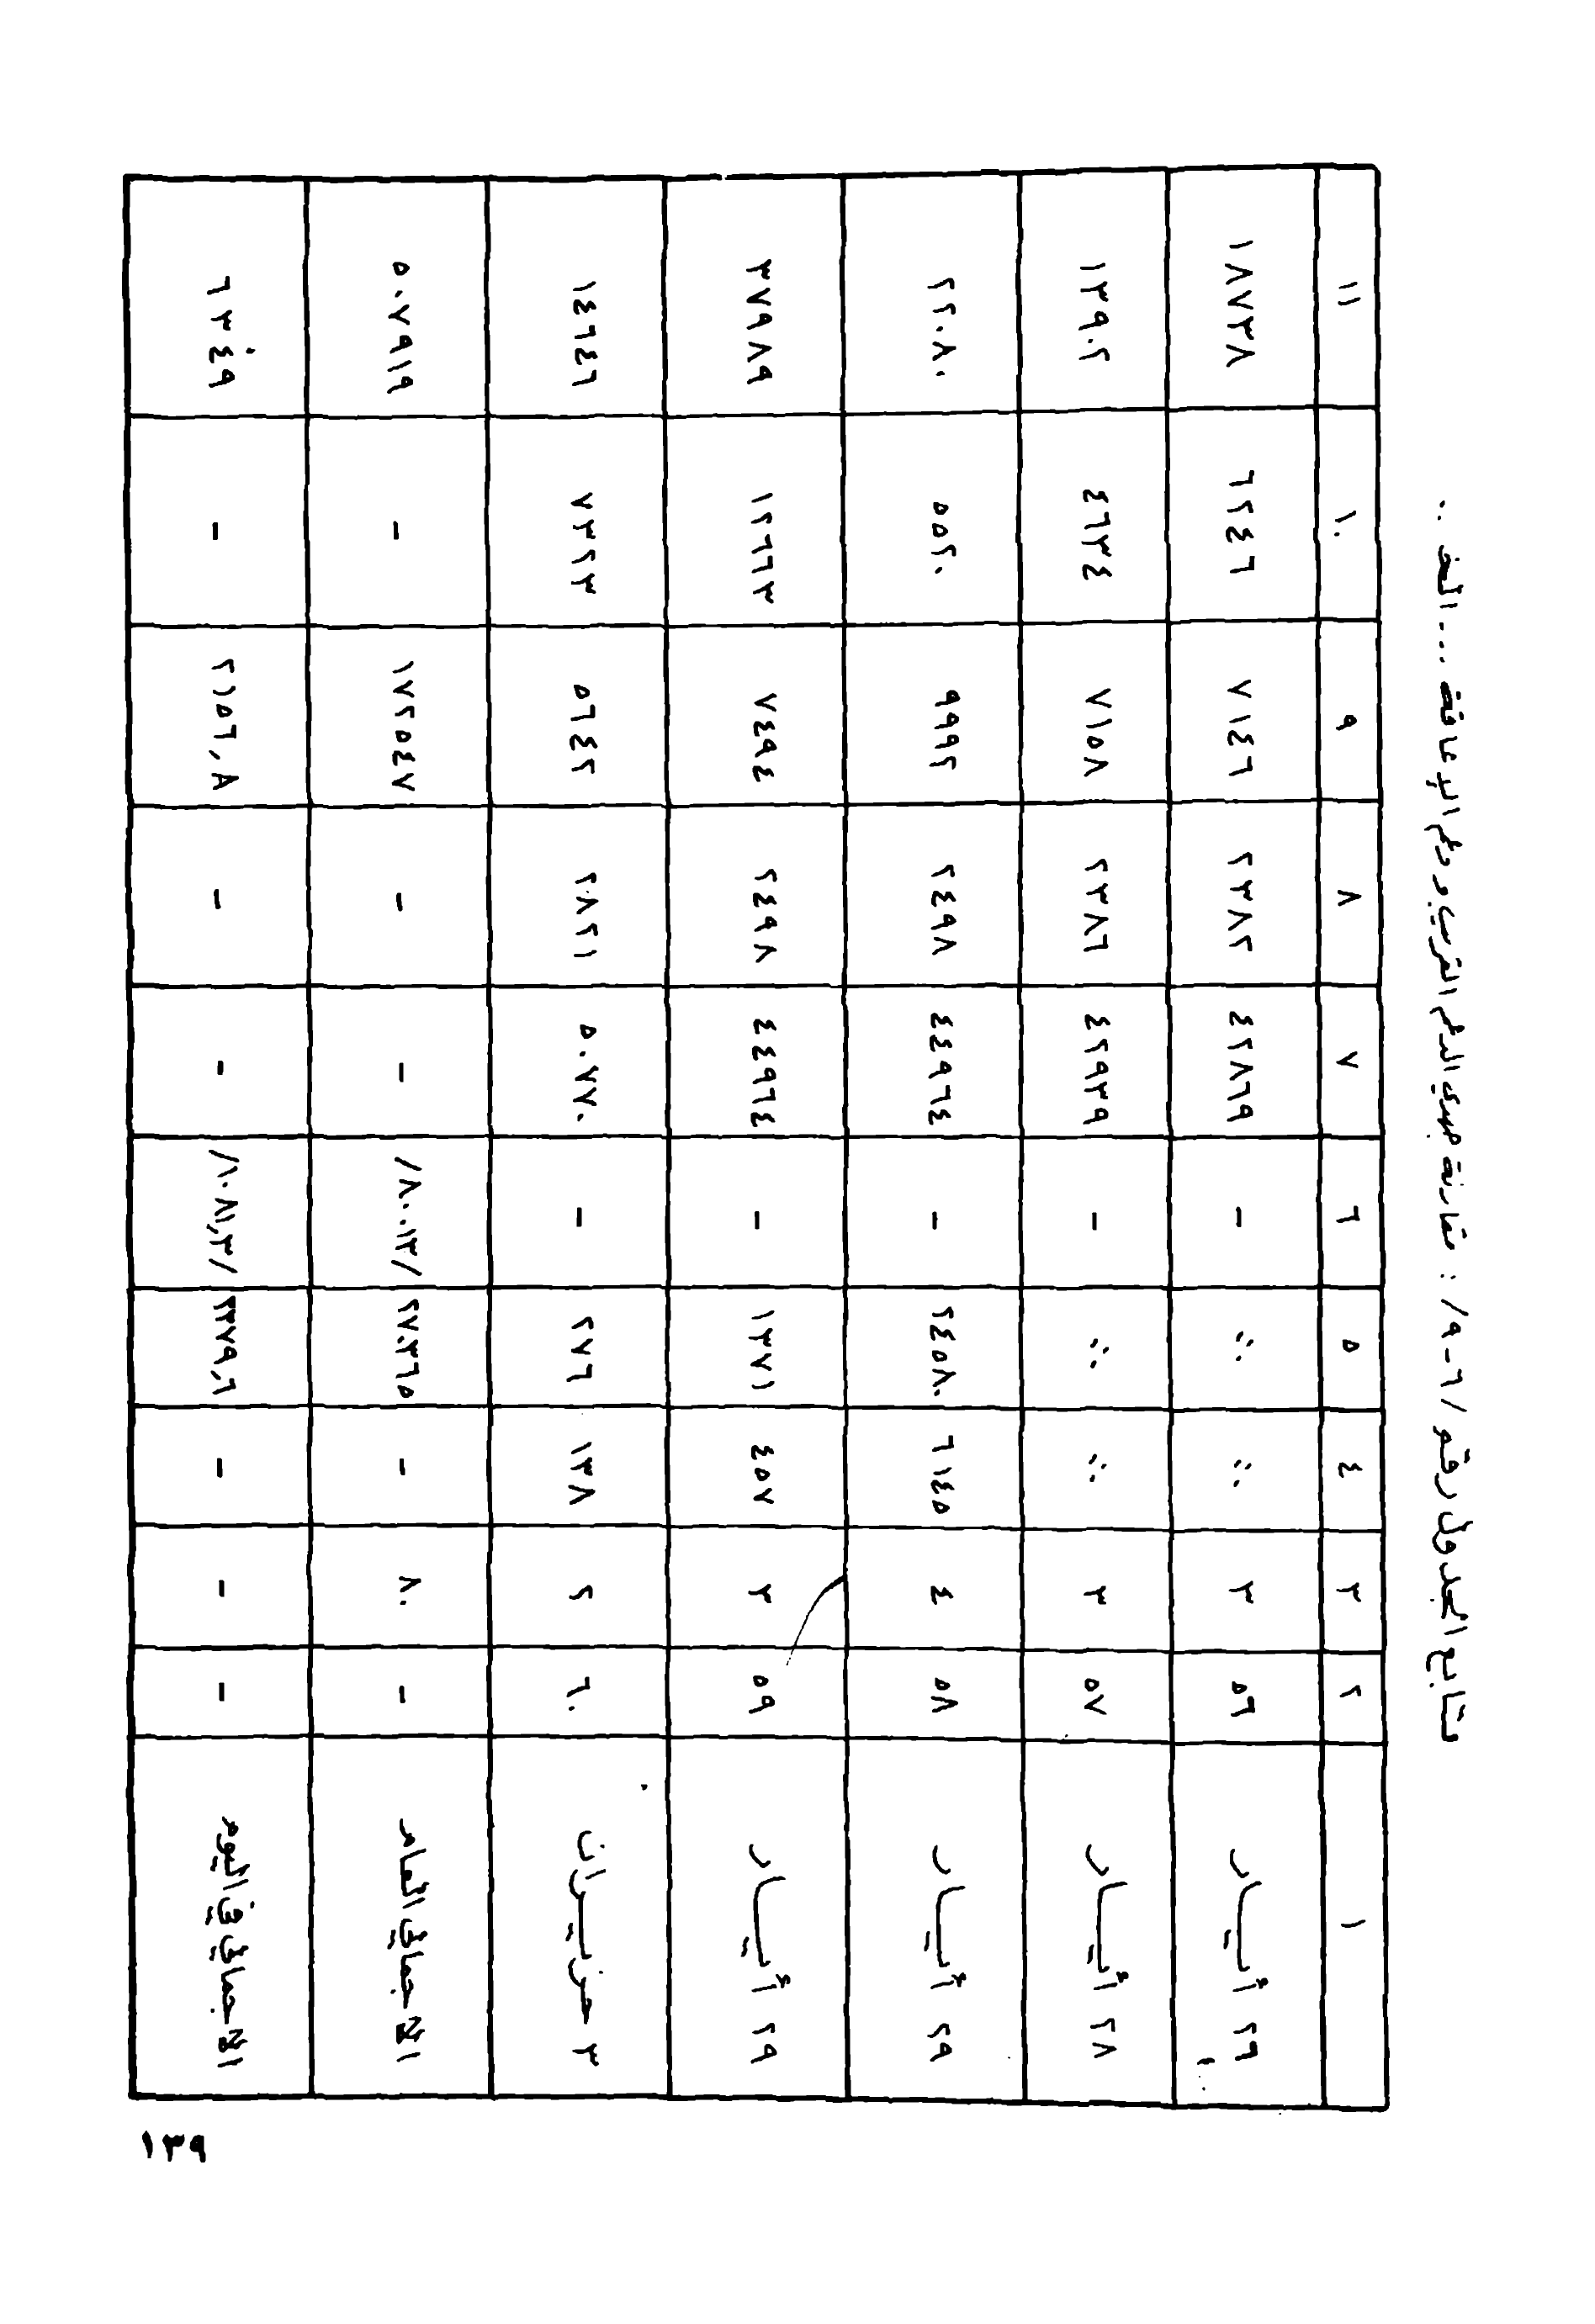 متابع الجدول رقم /٦-٩/ : مقارنة جهدي الدعم القريب ودعم الإعاقة ... الخ ..
١ ٢ ٣ ٤ ٥ ٦ ٧ ٨ ٩ ١٠ ١١
٢٦ أيار ٥٦ ٣ ∴ ∴ - ٤٢٨٦٩ ٢٣٨٢ ٧١٤٦ ٦٢٤٦ ١٨٧٣٨
٢٨ أيار ٥٧ ٣ ∴ ∴ - ٤٢٩٣٩ ٢٣٨٦ ٧١٥٨ ٤٦٣٤ ١٣٩٠٢
٢٩ أيار ٥٨ ٤ ٦١٤٥ ٢٤٥٨٠ - ٤٤٩٦٤ ٢٤٩٨ ٩٩٩٢ ٥٥٢٠ ٢٢٠٨٠
٢٩ أيار ٥٩ ٣ ٤٥٧ ١٣٧١ - ٤٤٩٦٤ ٢٤٩٨ ٧٤٩٤ ١٢٦٦٣ ٣٧٩٨٩
٣ حزيران ٦٠ ٢ ١٣٨ ٢٧٦ - ٥٠٧٧٠ ٢٨٢١ ٥٦٤٢ ٧٣٢٣ ١٤٦٤٦
الاجمالي العام - ٨٠ - ٢٧٠٣٦٥ /٨٠٠١٣/ - - ١٧٢٥٤٧ - ٥٠٧٩١٩
الاجمالي في اليوم - - - ٣٣٧٩,٦ /١٠٨١,٣/ - - ٢١٥٦,٨ - ٦٣٤٩
١٣٩